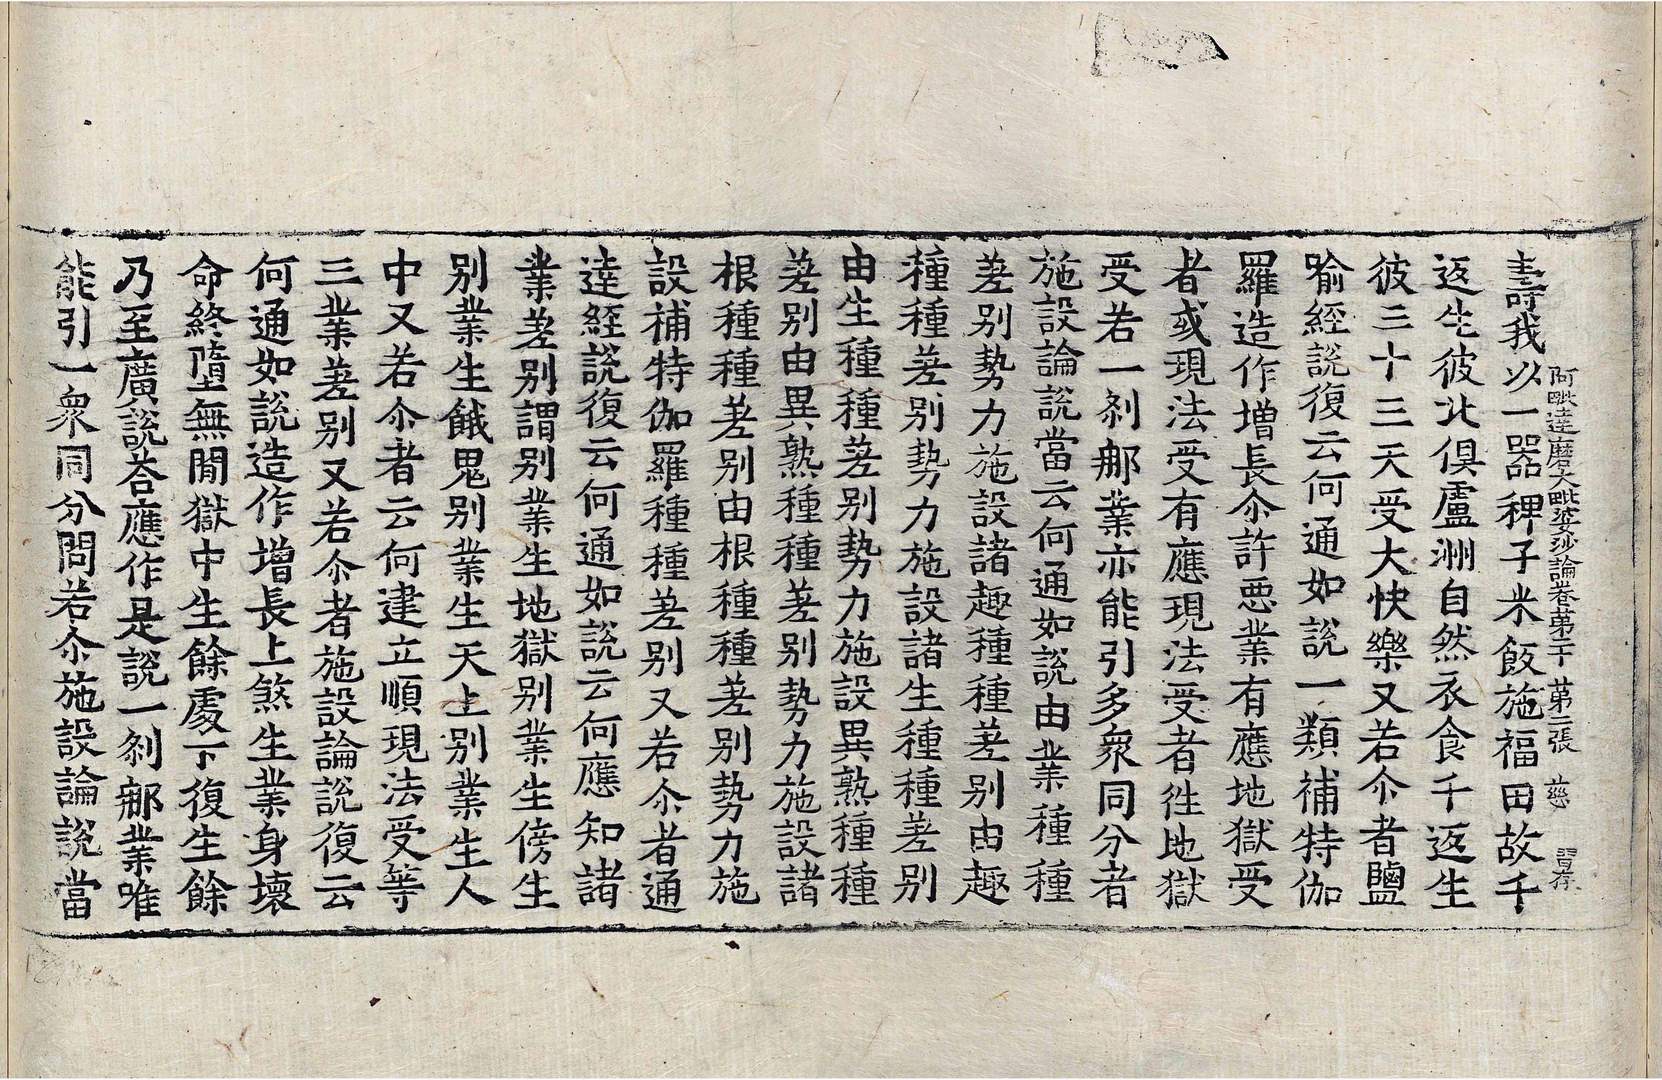 阿毗達磨大毗婆沙論卷第二十 第二張 慈 習存
壽我以一器稗子米飯施福田故千
返生彼北俱盧洲自然衣食千返生
彼三十三天受大快樂又若尒者鹽
喻經說復云何通如說一類補特伽
羅造作增長尒許惡業有應地獄受
者或現法受有應現法受者徃地獄
受若一剎那業亦能引多衆同分者
施設論說當云何通如說由業種種
差別勢力施設諸趣種種差別由趣
種種差別勢力施設諸生種種差別
由生種種差別勢力施設異熟種種
差別由異熟種種差別勢力施設諸
根種種差別由根種種差別勢力施
設補特伽羅種種差別又若尒者通
達經說復云何通如說云何應知諸
業差別謂別業生地獄別業生傍生
別業生餓鬼別業生天上別業生人
中又若尒者云何建立順現法受等
三業差別又若尒者施設論說復云
何通如說造作增長上煞生業身壞
命終墮無間獄中生餘處下復生餘
乃至廣說荅應作是說一剎那業唯
能引一衆同分問若尒施設論說當